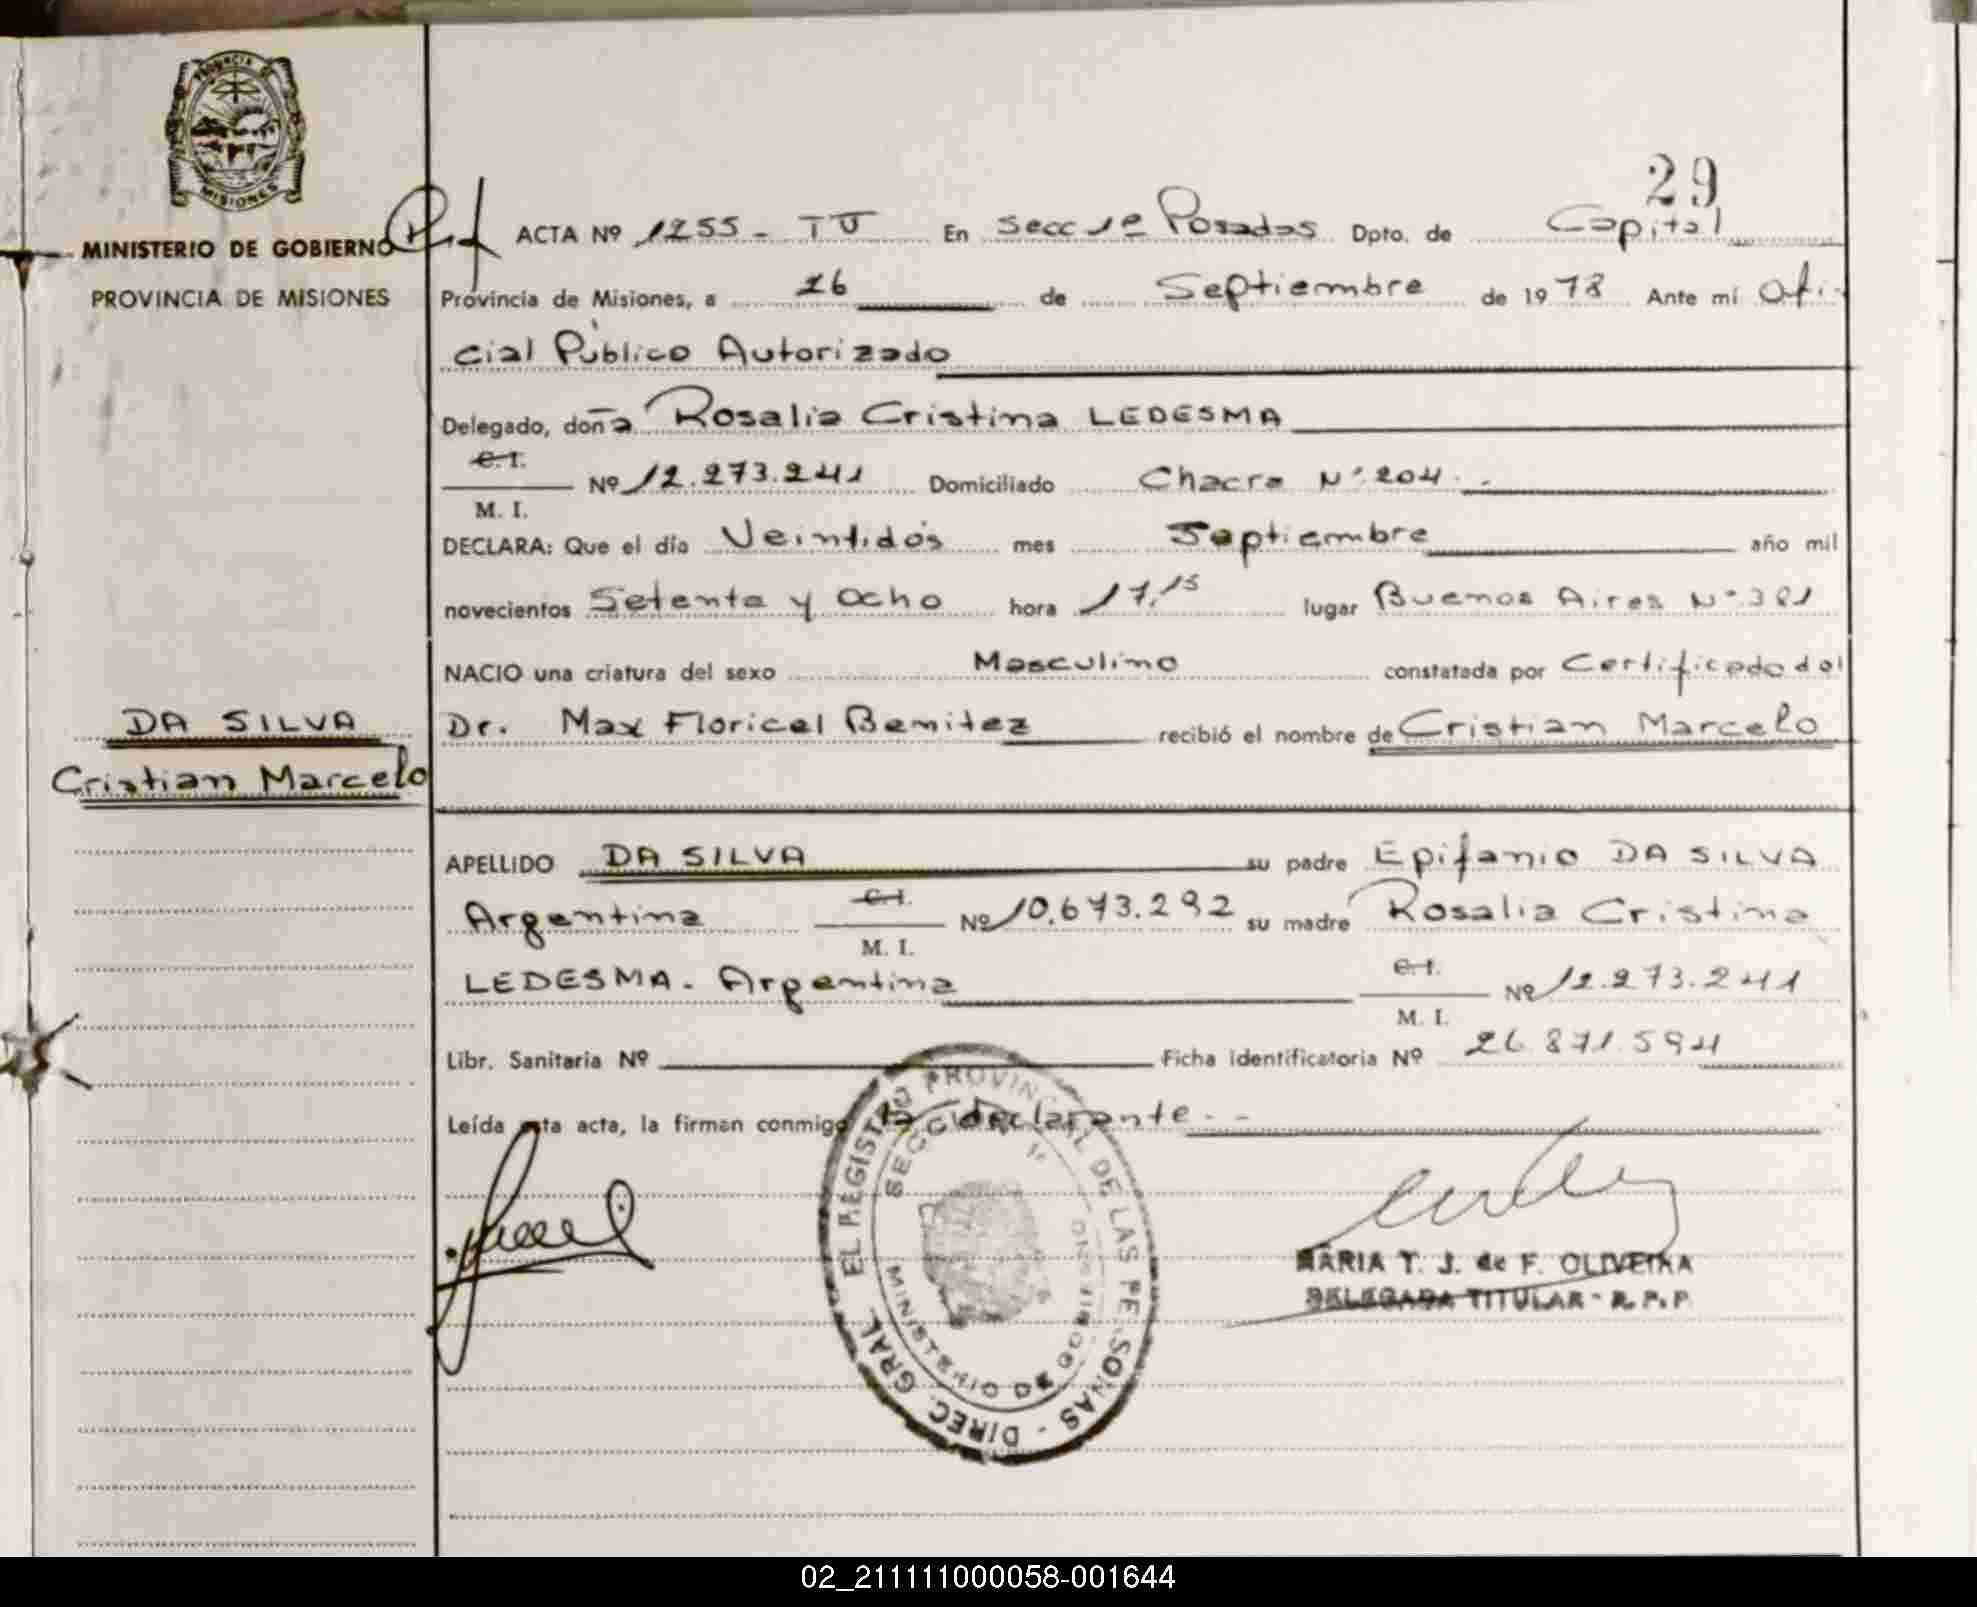 PROVINCIA DE
MISIONES
MINISTERIO DE GOBIERNO
PROVINCIA DE MISIONES
29
ACTA Nº 1255 - TU En Secc 1ª Posadas Dpto. de Capital
Provincia de Misiones, a 26 de Septiembre de 1978 Ante mí Ofi-
cial Público Autorizado
Delegado, doña Rosalia Cristina LEDESMA
C. I.
Nº 12.273.241 Domiciliado Chacra Nº 204.
M. I.
DECLARA: Que el día Veintidós mes Septiembre año mil
novecientos Setenta y Ocho hora 17,15 lugar Buenos Aires Nº 381
NACIO una criatura del sexo Masculino constatada por Certificado del
Dr. Max Floricel Benitez recibió el nombre de Cristian Marcelo
DA SILVA
Cristian Marcelo
APELLIDO DA SILVA su padre Epifanio DA SILVA
Argentina C. I. Nº 10.673.292 su madre Rosalia Cristina
M. I.
LEDESMA. Argentina C. I. Nº 12.273.241
M. I.
Libr. Sanitaria Nº Ficha identificatoria Nº 26.871.594
Leída esta acta, la firman conmigo la declarante - -
DIREC. GRAL. EL REGISTRO PROVINCIAL DE LAS PERSONAS -
SECCION 1ª
MINISTERIO DE GOBIERNO
MARIA T. J. de F. OLIVEIRA
DELEGADA TITULAR - R. P. P.
02_211111000058-001644